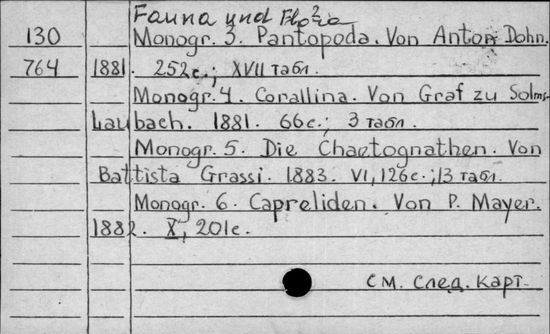 Fauna und Flora
130 Monogr. 3. Pantopoda. Von Anton Dohn.
764 1881. 252с.; XVII табл.
Monogr. 4. Corallina. Von Graf zu Solms-
Laubach. 1881. 66с.; 3 табл.
Monogr. 5. Die Chaetognathen. Von
Battista Grassi. 1883. VI, 126с.; 13 табл.
Monogr. 6. Capreliden. Von P. Mayer.
1882. X, 201с.
см. след. карт.